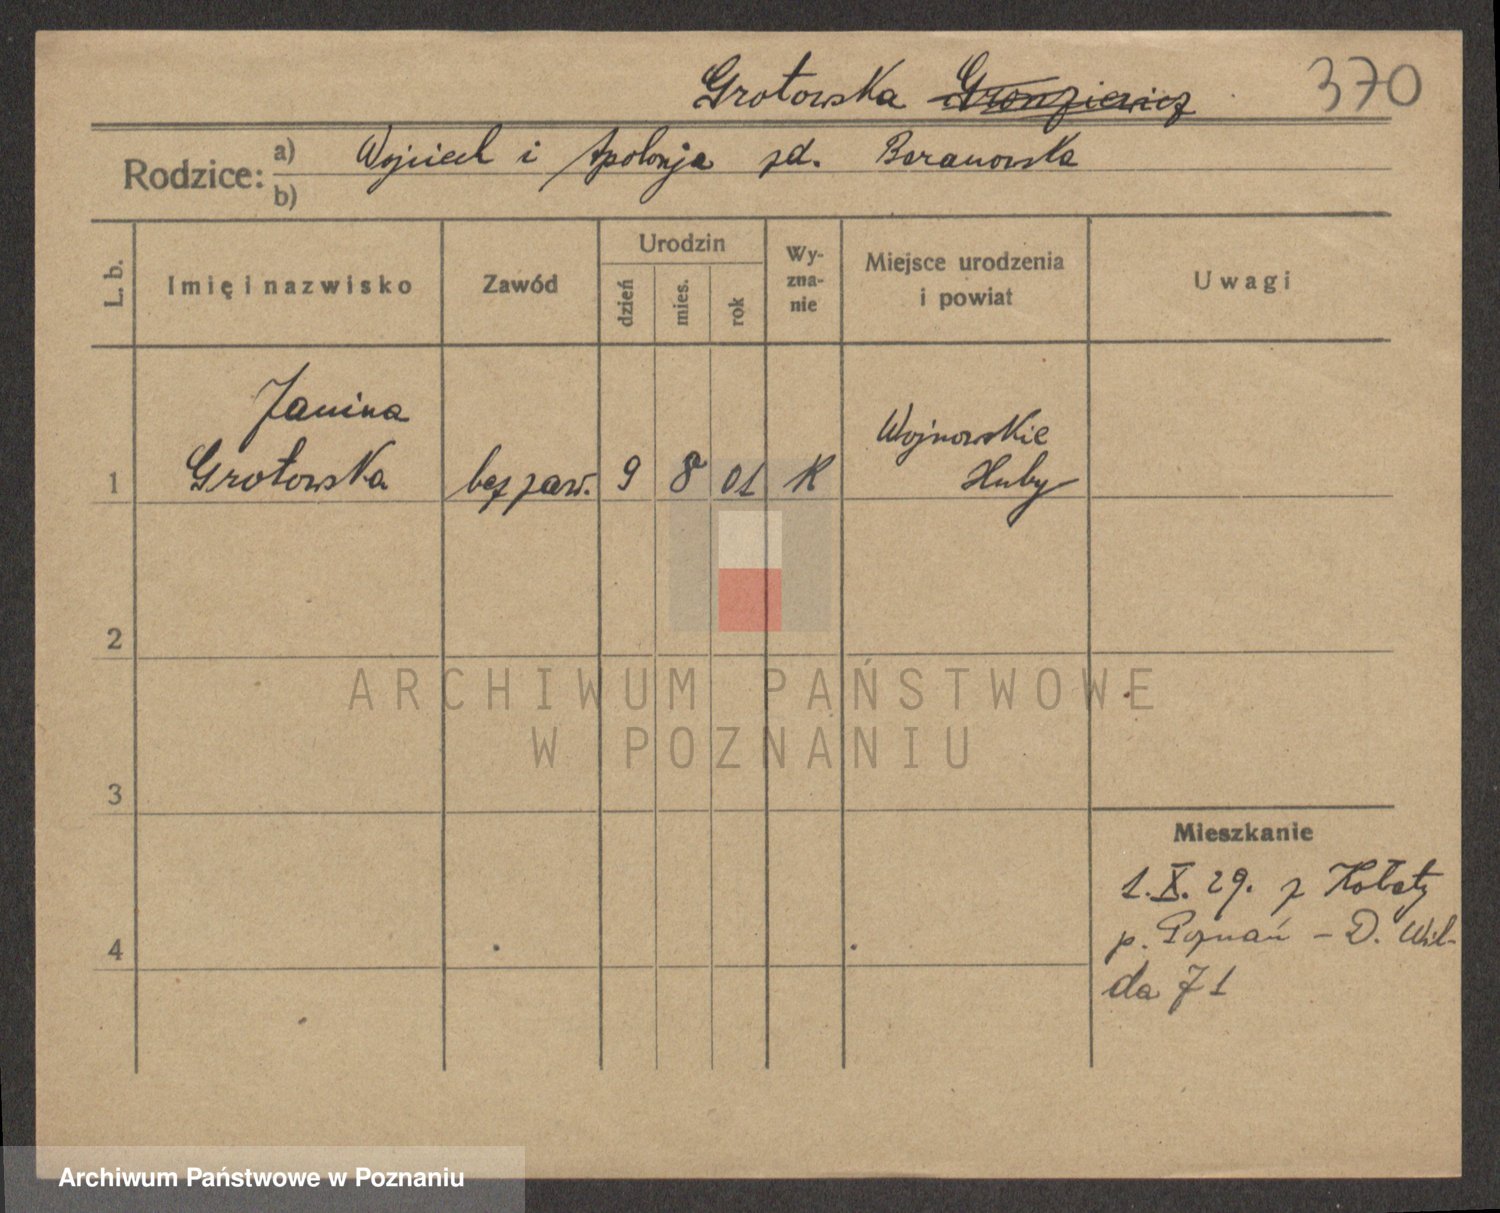 Grotowska Gronziewicz 370
Rodzice: a) Wojciech i Apolonja zd. Baranowska
b)
L. b. Imię i nazwisko Zawód Urodzin dzień mies. rok Wy-zna-nie Miejsce urodzenia i powiat Uwagi
Janina
Grotowska
1 bez zaw. 9 8 01 K Wojnowskie
Huby
2
ARCHIWUM PAŃSTWOWE
W POZNANIU
3
Mieszkanie
1. X. 29. z Kobaty
p. Poznań – D. Wil-
da 71
4
Archiwum Państwowe w Poznaniu